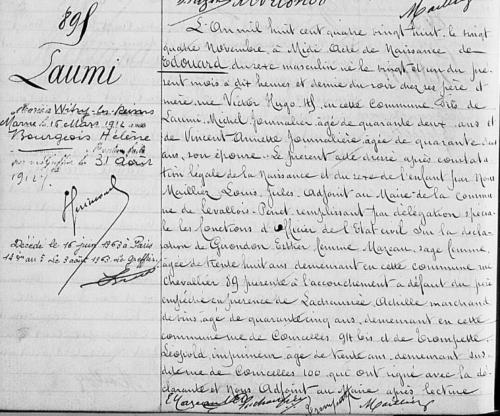 895
Laumi
Marié à Witry-les-Reims
Marne le 15 Mars 1914 avec
Bourgeois Hélène
Mention faite
par nous Greffier le 31 Août
191
Décédé le 16 juin 1963 à Paris
14ème arr le 3 août 1963 Le Greffier
L'An mil huit cent quatre vingt huit, le vingt
quatre Novembre, à Midi Acte de Naissance de
Edouard du sexe masculin né le vingt et un du pré
sent mois à dix heures et demie du soir chez ses père et
mère rue Victor Hugo, en cette Commune fils de
Laumi, Michel Journalier âgé de quarante deux ans et
de Vincent Annette Journalière, âgée de quarante
ans, son épouse. Le présent acte dressé après constata
tion légale de la Naissance et du sexe de l'enfant par Nous
Maillier Louis, Jules, Adjoint au Maire de la Commu
ne de Levallois-Perret, remplissant par délégation spécia
le les fonctions d'Officier de l'Etat civil Sur la décla
ration de Guondon Esther femme Marzeau, sage femme,
âgée de trente huit ans, demeurant en cette commune rue
Chevallier 89 présente à l'accouchement à défaut du père
empêché en présence de Lachaussée, Achille, marchand
de vins, âgé de quarante cinq ans, demeurant en cette
commune rue de Courcelles, 94 bis, et de Trompette
Léopold imprimeur âgé de trente ans, demeurant sus
dite rue de Courcelles 100, qui ont signé avec la dé
clarante et Nous Adjoint au Maire après lecture
Marzeau Lachaussée Trompette Maillier